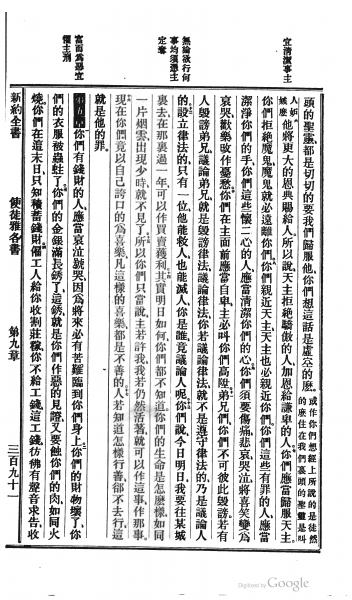 宜清潔事主
無論欲行何
事均須憑主
定奪
富而為惡宜
懼主刑
頭的聖靈都是切切的要我們歸服他你們想這話是虛空的麼
或作你們想經上所說的是徒然
的麼住在我們裏頭的聖靈是叫
人妬
嫉麼
他將更大的恩典賜給人所以說天主拒絕驕傲的人加恩給謙卑的人你們應當歸服天主
你們拒絕魔鬼魔鬼就必遠離你們你們親近天主天主也必親近你們你們這些有罪的人應當
潔淨你們的手你們這些懷二心的人應當清潔你們的心你們須要傷痛悲哀哭泣將喜笑變為
哀哭歡樂改作憂愁你們在主面前應當自卑主必叫你們高陞弟兄們你們不可彼此毀謗若有
人毀謗弟兄議論弟兄就是毀謗律法議論律法你若議論律法就不是遵守律法的乃是議論人
的設立律法的只有一位他能救人也能滅人你是誰竟議論人呢你們說今日明日我要往某城
裏去在那裏過一年可以作買賣獲利其實明日如何你們都不知道你們的生命是怎麼樣如同
一片烟雲出現少時就不見了所以你們只當說主若許我我若仍然活著就可以作這事作那事
現在你們竟以自己誇口的為喜樂凡這樣的喜樂都是不善的人若知道怎樣行善卻不去行這
就是他的罪
第五章你們有錢財的人應當哀泣號哭因為將來必有苦難臨到你們身上你們的財物壞了你
們的衣服被蟲蛀了你們的金銀滿長銹了這銹就是你們作惡的見證又要蝕你們的肉如同火
燒你們在這末日只知積蓄錢財僱工人給你收割莊稼你不給工錢這工錢彷彿有聲音求告收
新約全書
使徒雅各書
第九章
三百九十一
Digitized by Google